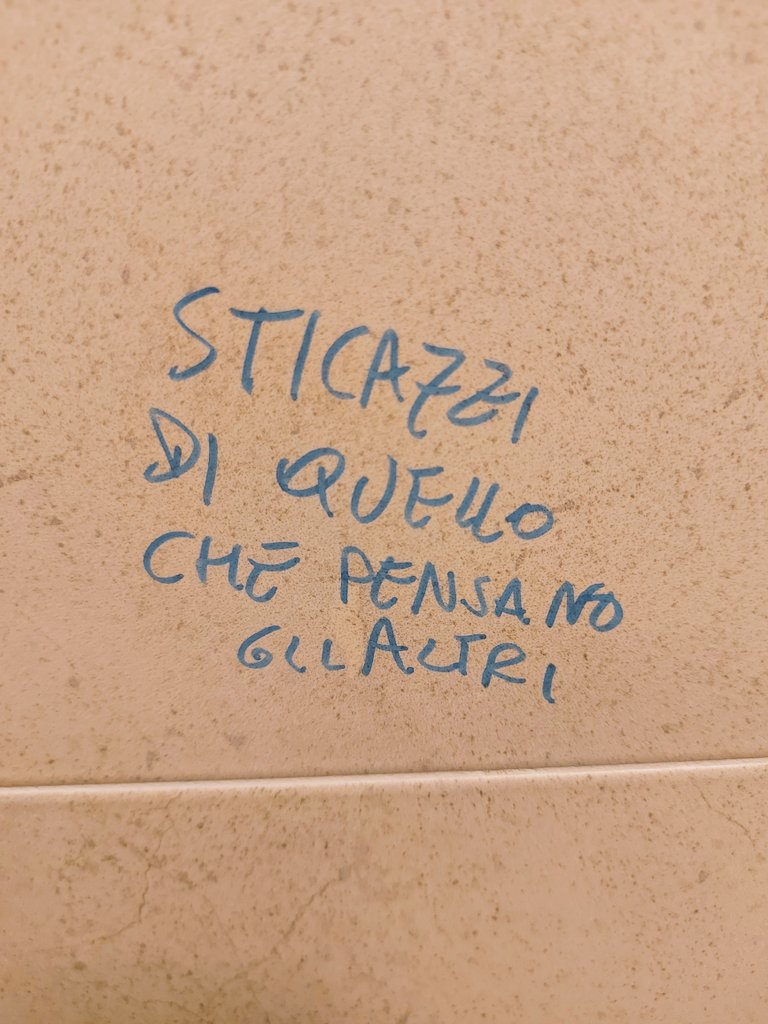 STICAZZI
DI QUELLO
CHE PENSANO
GLI ALTRI